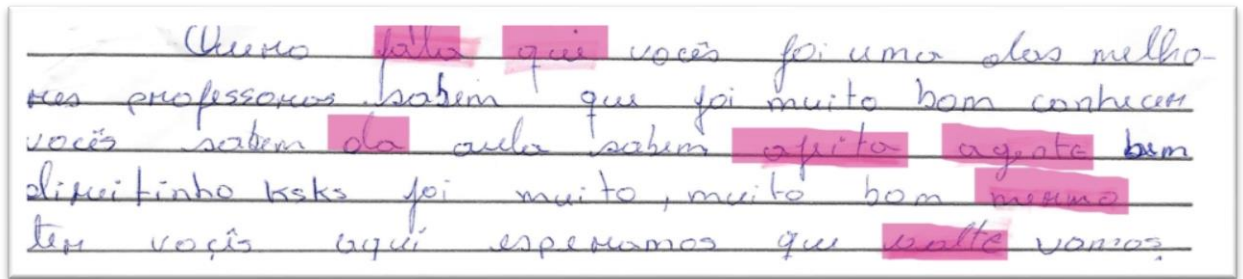 Quero fála qui vocês foi uma das melho-
res professoras. sabem que foi muito bom conhecer
vocês sabem da aula sabem agente bem
direitinho ksks foi muito, muito bom mermo
ter voçês aqui esperamos que volte vamos.